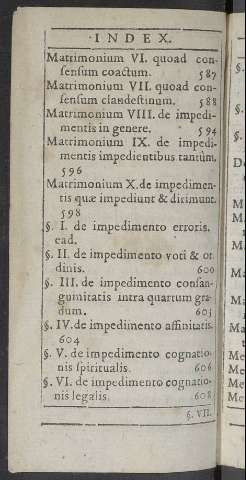 ·INDEX.
Matrimonium VI. quoad con-
sensum coactum. 587
Matrimonium VII. quoad con-
sensum clandestinum. 588
Matrimonium VIII. de impedi-
mentis in genere. 594
Matrimonium IX. de impedi-
mentis impedientibus tantùm.
596
Matrimonium X. de impedimen-
tis quæ impediunt & dirimunt.
598
§. I. de impedimento erroris.
ead.
§. II. de impedimento voti & or
dinis. 600
§. III. de impedimento consan-
guinitatis intra quartum gra-
dum. 603
§. IV. de impedimento affinitatis.
604
§. V. de impedimento cognatio-
nis spiritualis. 606
§. VI. de impedimento cognatio-
nis legalis. 608
§. VII.